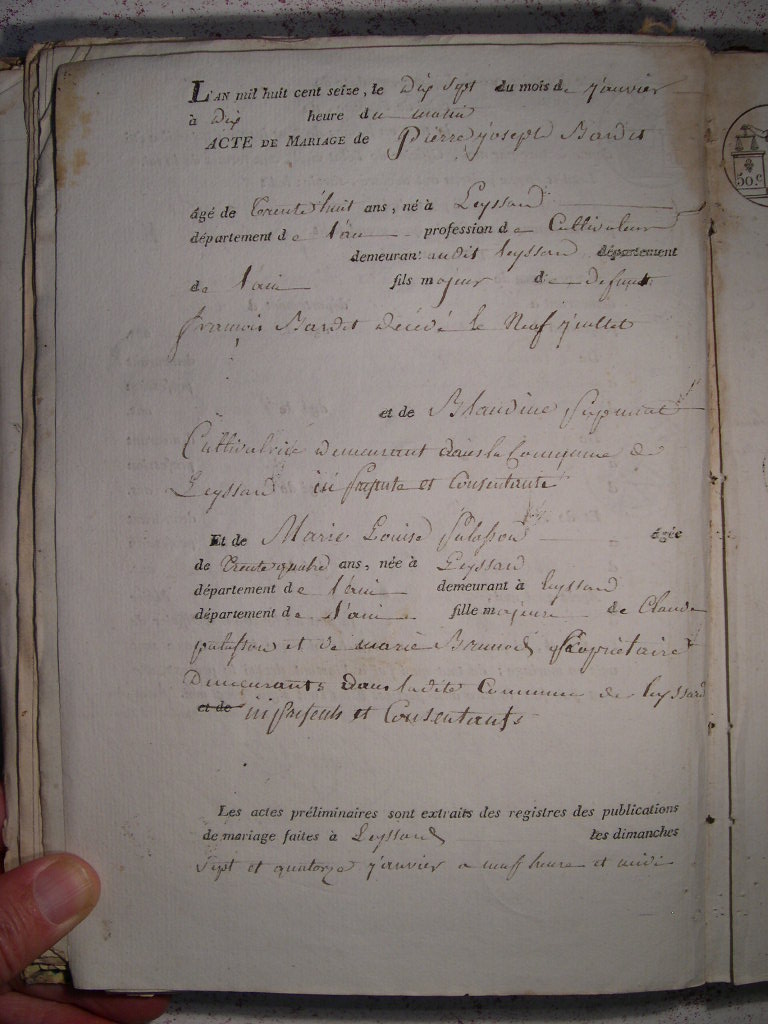 L'AN mil huit cent seize, le dix sept du mois de janvier
à dix heure du matin
ACTE DE MARIAGE de Pierre joseph Bardet
âgé de trente huit ans, né à Leyssard
département de l'ain profession de Cultivateur
demeurant audit leyssard département
de l'ain fils majeur de defunt
francois Bardet décédé le Neuf juillet
et de Blandine
Cultivatrice demeurant dans la Commune de
Leyssard ici presente et Consentante
Et de Marie Louise âgée
de trente quatre ans, née à Leyssard
département de l'ain demeurant à leyssard
département de l'ain fille majeure de Claude
et de marie propriétaire
Demeurants dans ladite Commune de leyssard
et de ici presents et Consentants
Les actes préliminaires sont extraits des registres des publications
de mariage faites à Leyssard les dimanches
sept et quatorze janvier a neuf heure et midi
50.c